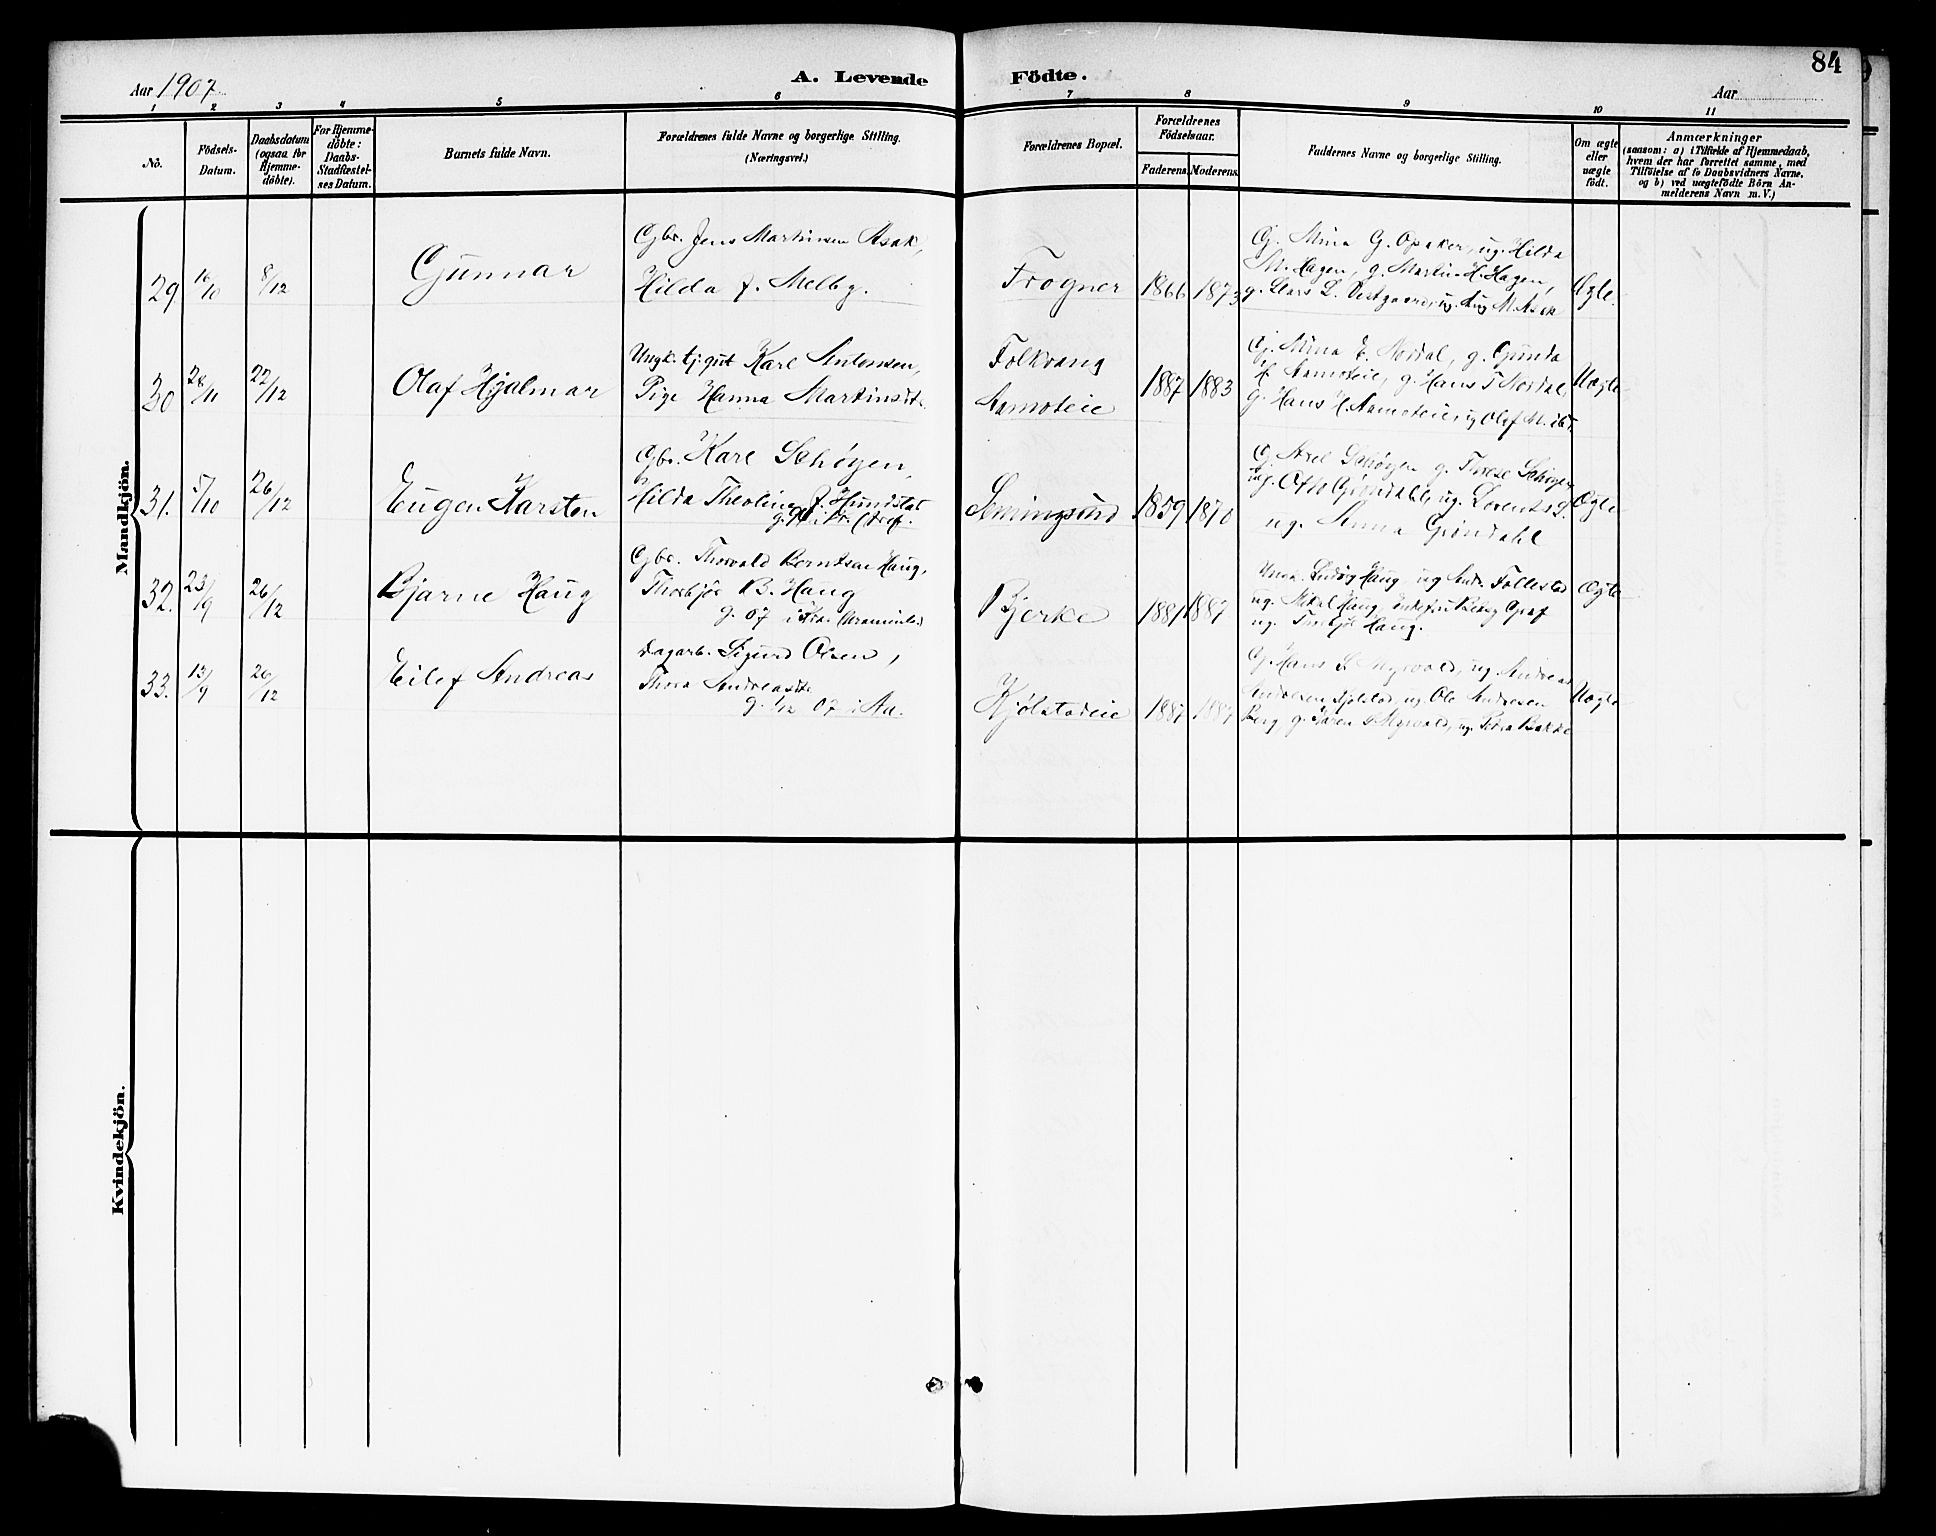 84
Aar 1907
A. Levende Födte.
Aar
1 2 3 4 5 6 7 8 9 10 11
No.
Födsels-
Datum.
Daabsdatum
(ogsaa for
Hjemme-
döbte).
For Hjemme-
döbte:
Daabs-
Stadfæstel-
ses Datum.
Barnets fulde Navn.
Forældrenes fulde Navne og borgerlige Stilling.
(Næringsvei.)
Forældrenes Bopæl.
Forældrenes
Födselsaar.
Faderens. Moderens.
Faddernes Navne og borgerlige Stilling.
Om ægte
eller
uægte
födt.
Anmærkninger
(saasom: a) i Tilfælde af Hjemmedaab,
hvem der har forrettet samme, med
Tilföielse af to Daabsvidners Navne,
og b) ved uægtefödte Börn An-
melderens Navn m. V.)
Mandkjön.
29 16/10 8/12
Gunnar
Gbr. Jens Martinsen Asak,
Hilda f. Melby.
Frogner
1866 1873
Gj. Mina G. Opaker, ug. Hilda
M. Hagen, g. Martin H. Hagen,
g. Lars L. Vestgaard, ug. Aug M. Asak
Ægte.
30 28/11 22/12
Olaf Hjalmar
Ungk. tj.gut Karl Antonsen,
Pige Hanna Martinsdt.
Folkvang
Aamoteie
1887 1883
Gj. Mina E. Nordal, g. Gunda
H. Aamoteie, g. Hans T Nordal,
g. Hans H. Aamoteie, ug Olaf M.
Uægte
31. 5/10 26/12
Eugen Karsten
Gbr. Karl Schøyen,
Hilda Theoline f. Hundstad
g. i Kr.
1859 1870
Gj. Axel Schøyen g. Therese Schøyen
ug. Otto Grøndahl, ug. Lorents
ug. Anna Grøndahl
Ægte
32. 23/9 26/12
Bjarne Haug
Gbr. Thorvald Berntsen Haug,
Thorbjør B. Haug
g. 07 i Kra.
Bjerke
1881 1887
Ungk. Ludvig Haug, ug Follestad
ug. Mikal Haug, Enkefru Betsy Graf
ug. Thorbjør Haug.
Ægte
33. 13/9 26/12
Eilef Andreas
Dagarb. Sigurd Olsen,
Thora Andreasdt.
g. 1/12 07 i Aa.
Kjølstadeie
1887 1887
Gj. Hans S. Myrvold, ug. Andreas
Andresen Kjølstad, ug. Ole Andresen
Berg, g. Karen S Myrvold, ug. Thora Bakke
Uægte
Kvindekjön.